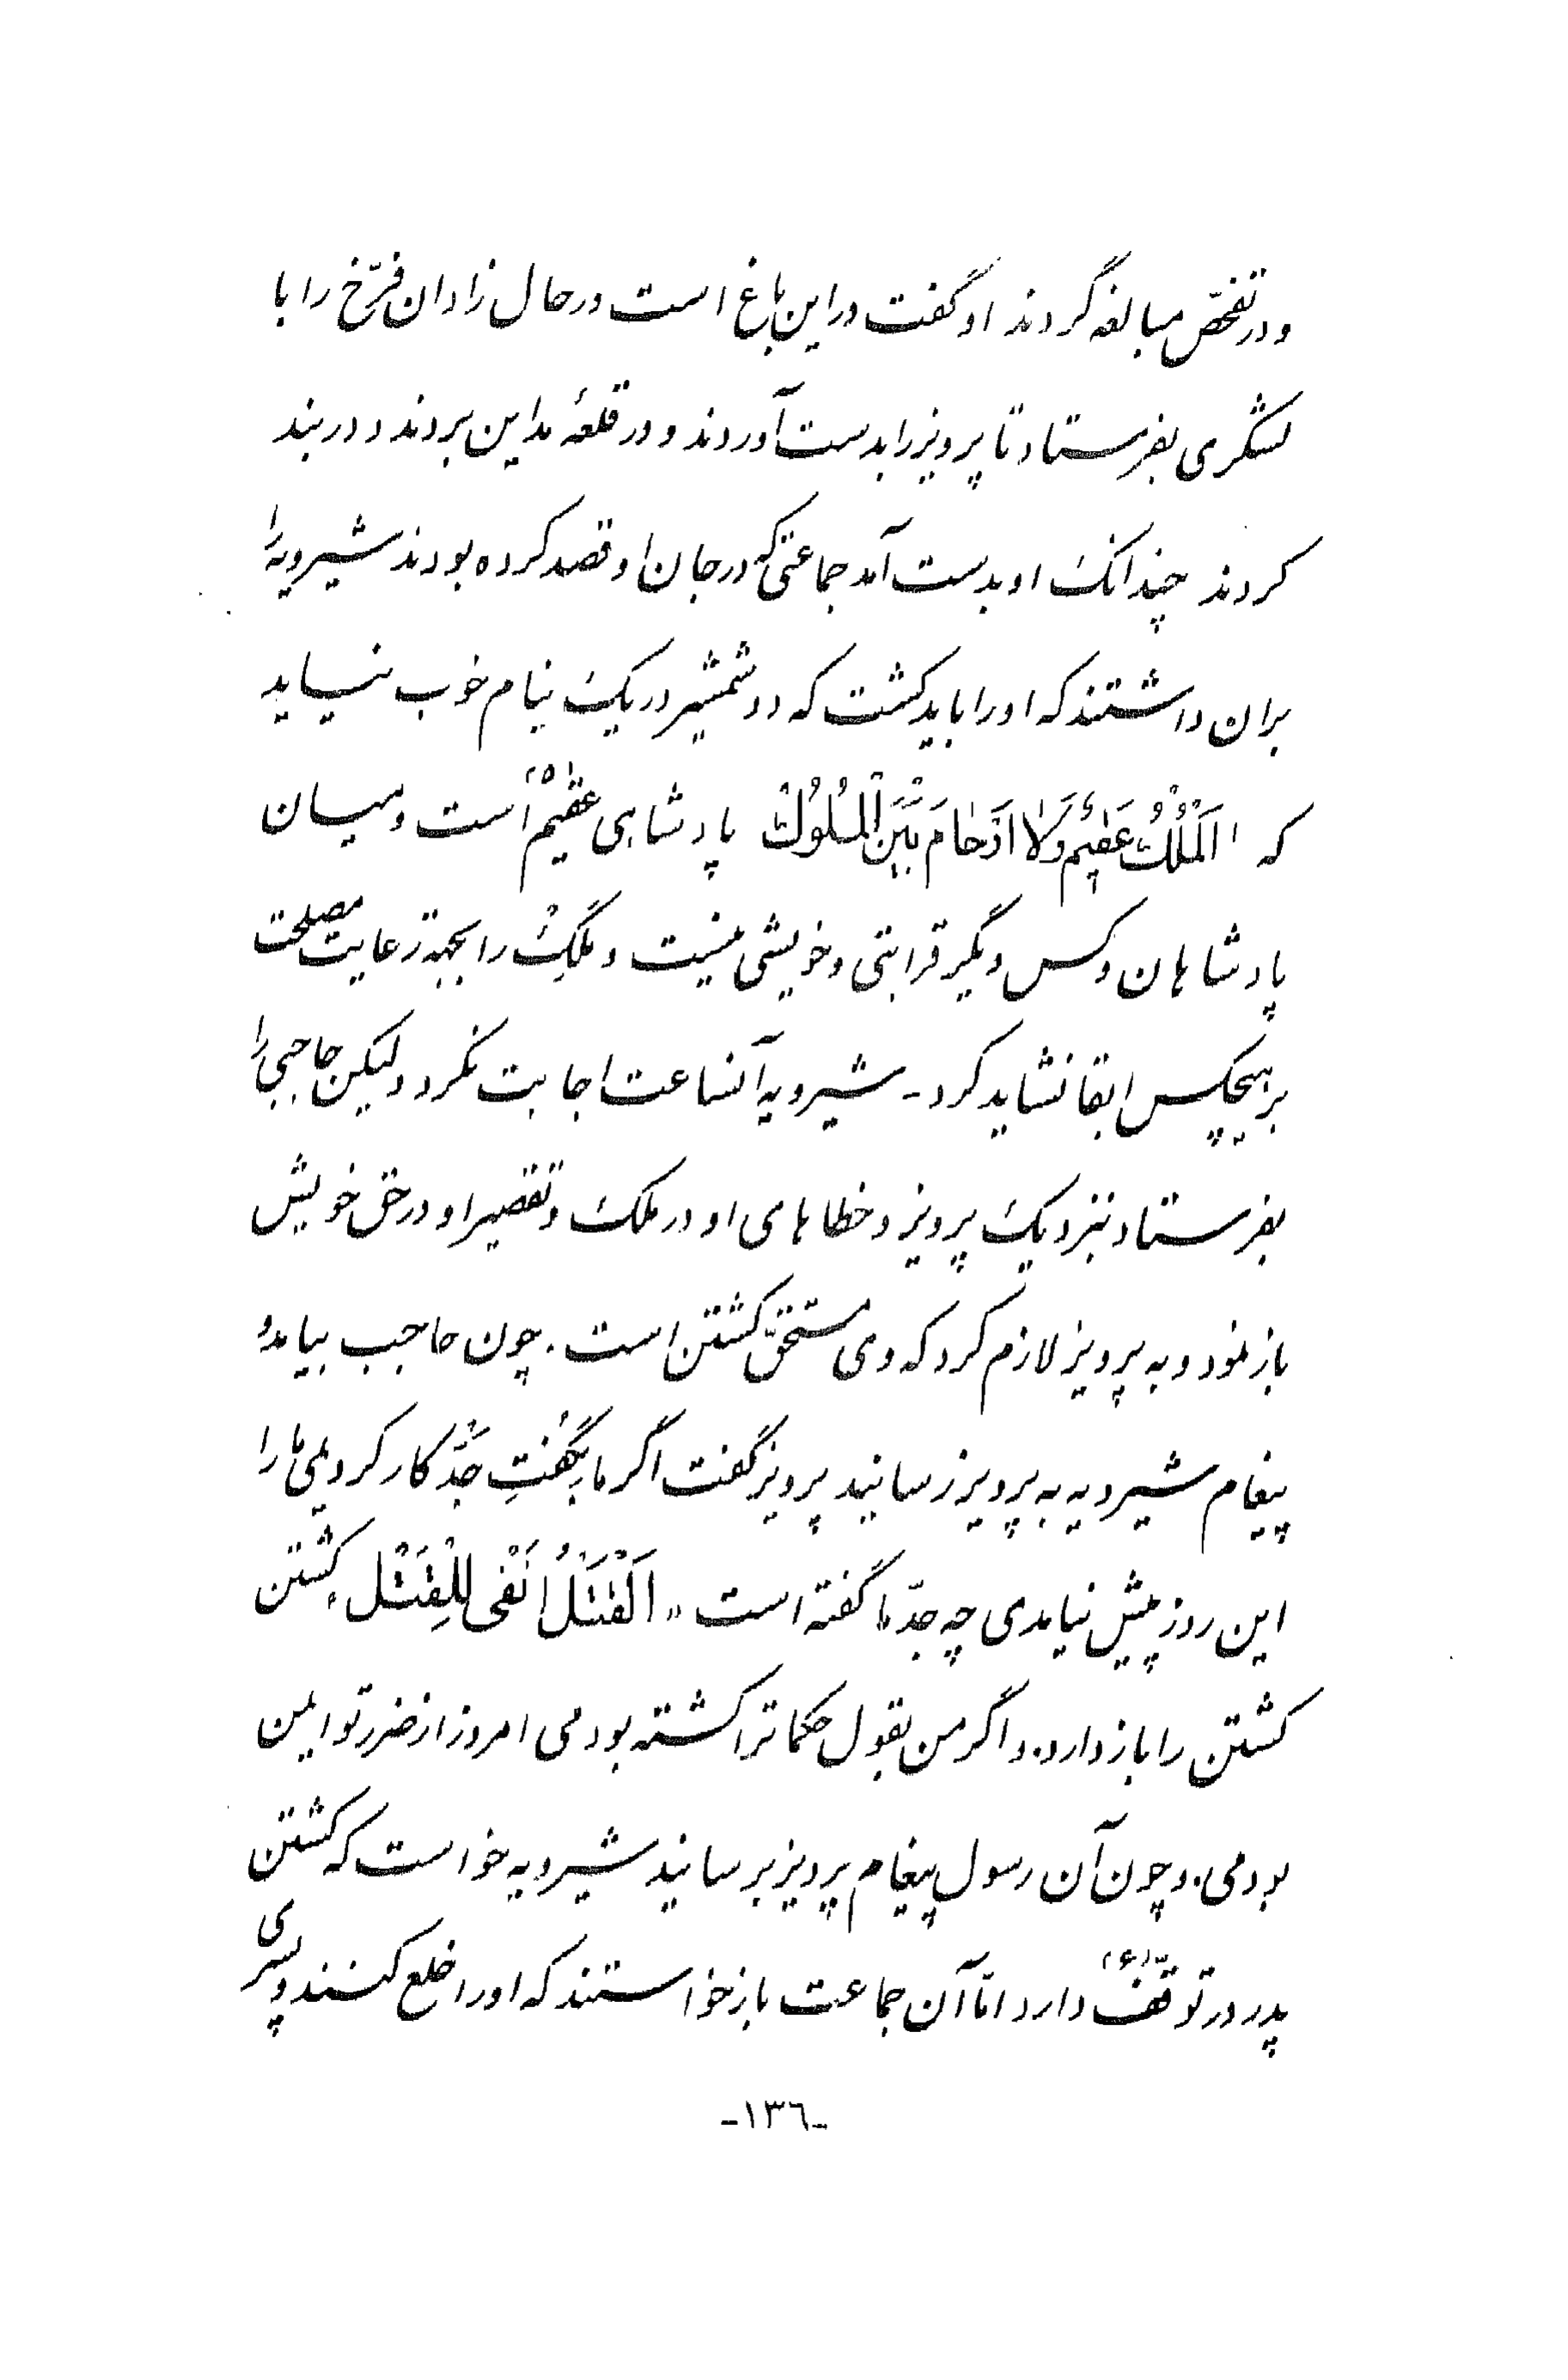 و در تفحّص مبالغه کردند او گفت در این باغ است در حال زادان فرّخ را با
لشگری بفرستاد تا پرویز را بدست آوردند و در قلعهٔ مداین بردند و در بند
کردند چندانک او بدست آمد جماعتی که در جان او قصد کرده بودند شیرویه را
بران داشتند که او را باید کشت که دو شمشیر در یک نیام خوب نیاید
که اَلْمُلْکُ عَقیٖمٌ وَلاٰ اَرْحٰامَ بَیْنَ الْمُلُوکْ پادشاهی عقیمْ(۵) است و میان
پادشاهان و کس دیگر قرابتی و خویشی نیست و مُلک را بجهة رعایت مصلحت
بر هیچکس ابقا نشاید کرد - شیرویه آنساعت اجابت نکرد و لیکن حاجبی را
بفرستاد بنزدیک پرویز و خطاهای او در ملک و تقصیر او در حق خویش
باز نمود و به پرویز لازم کرد که وی مستحقّ کشتن است. چون حاجب بیامد و
پیغام شیرویه به پرویز رسانید پرویز گفت اگر ما بگفتِ جَدّ کار کردیمی ما را
این روز پیش نیامدی چه جدّ ما گفته است «اَلْقَتْلُ اَنْفی لِلْقَتْل» کشتن
کشتن را باز دارد. و اگر من بقول حکما ترا کشته بودمی امروز از ضرر تو ایمن
بودمی. و چون آن رسول پیغام پرویز برسانید شیرویه خواست که کشتن
پدر در توقّف(۶) دارد امّا آن جماعت باز خواستند که او را خلع کنند و پسری
-۱۳۶-